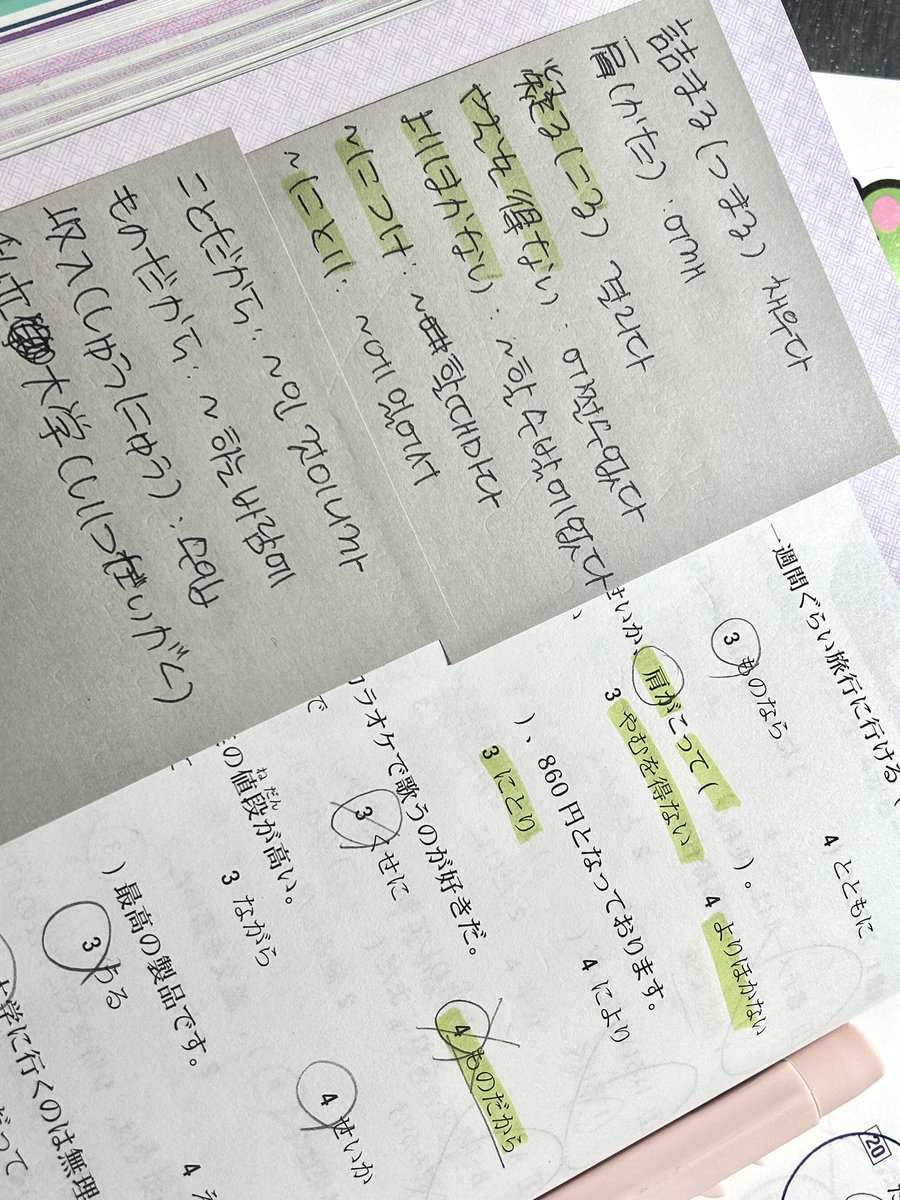 詰まる(つまる) 채우다
肩(かた): 어깨
凝る(こる) 결리다
やむを得ない: 어쩔수없다
よりほかない: ~할 수밖에없다
~につけ: ~할때마다
~にとり: ~에 있어서
ことだから: ~인 것이니까
ものだから: ~하는바람에
収入(しゅうにゅう): 수입
大学(こくりつだいがく)
一週間ぐらい旅行に行ける(
3 ものなら
4 とともに
せいか、肩がこって(
)。
3 やむを得ない
4 よりほかない
)、860円となっております。
3 にとり
4 により
カラオケで歌うのが好きだ。
3 くせに
4 ものだから
の値段が高い。
ねだん
3 ながら
4 せいか
)最高の製品です。
3 ある
大学に行くのは無理
だって
20